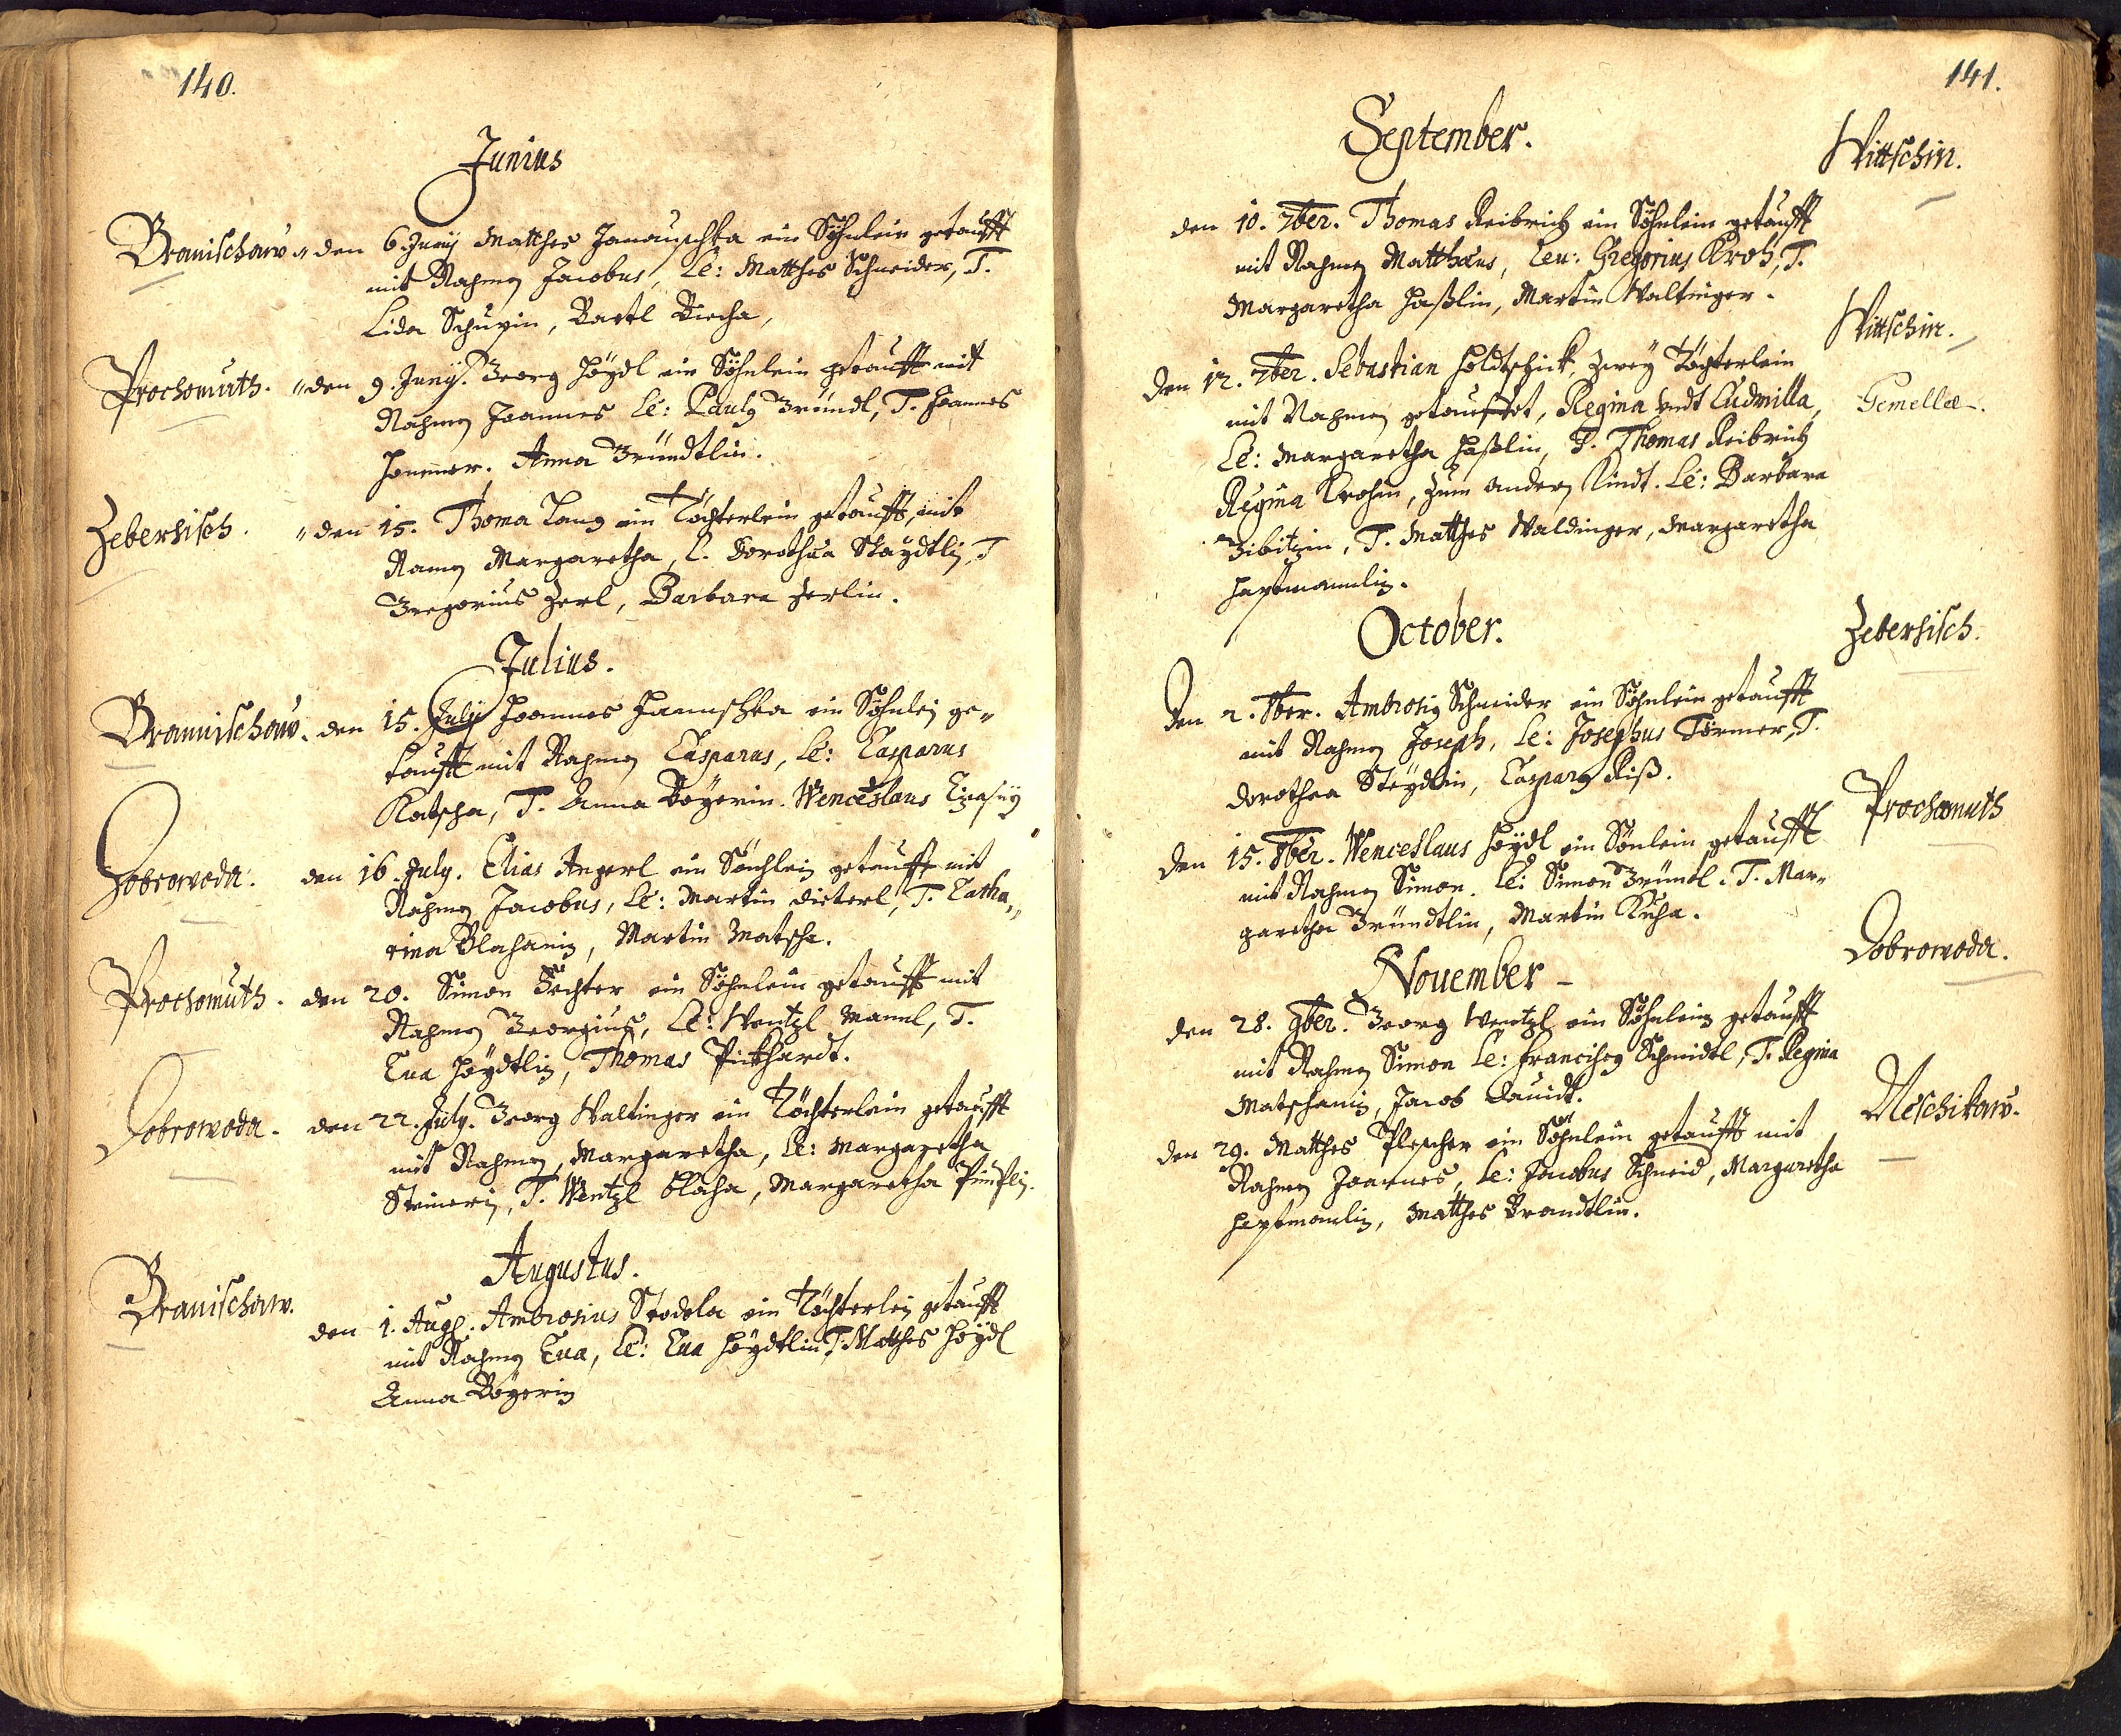 140.
Junius
Branischaw „ den 6 Junij Matthes Janauschka ein Söhnlein getaufft
mit Nahmen Jacobus, Le: Matthes Schneider, T.
Lida Schupin, Bartl Riecha,
Prochomuth. „ den 9. Junij. Georg Höÿdl ein Söhnlein getaufft mit
Nahmen Joannes Le: Paulg Gründl, T. Joannes
Hommer. Anna Gründtlin.
Zebersisch. „ den 15. Thoma Lang ein Töchterlein getaufft, mit
Namen Margaretha, L. Dorothea Staÿdtlin, T
Gregorius Zerl, Barbara Zerlin.
Julius.
Brannischaw. den 15. July Joannes Hanuschka ein Söhnlein ge„
taufft mit Nahmen Casparus, Le: Casparus
Katscha, T. Anna Böÿerin. Wenceslaus
Dobrowoda. den 16. July. Elias Angerl ein Sönhlein getaufft mit
Nahmen Jacobus, Le: Martin Dieterl, T. Catha„
rina Blahanin, Martin Matscha.
Prochomuth. den 20. Simon Fechter ein Söhnlein getaufft mit
Nahmen Georgius, Le: Wentzl Mannl, T.
Eua Höÿdtlin, Thomas Pickhardt.
Dobrowoda. den 22. July. Georg Waltinger ein Töchterlein getaufft
mit Nahmen Margaretha, Le: Margaretha
Steinerin, T. Wentzl Blaha, Margaretha
Augustus.
Branischaw. den 1. Aug. Ambrosius Stodola ein Töchterlein getaufft
mit Nahmen Eua, Le: Eua Höÿdtlin, T. Matthes Höÿdl
Anna Böÿerin
141.
September.
Wittschin.
den 10. 7ber. Thomas Reibrich ein Söhnlein getaufft
mit Nahmen Matthæus, Leu: Gregorius Kroh, T.
Margaretha Haßlin, Martin Waltinger.
Wittschin.
den 12. 7ber. Sebastian Holdtschick, Zweÿ Töchterlein
mit Nahmen getauffet, Regina vndt Ludmilla,
Gemellæ.
Le: Margaretha Haßlin, T. Thomas Reibrich
Regina Krohin, Zum andern Kindt. Le: Barbara
Zibitzin, T. Matthes Waldinger, Margaretha
Hastmannlin.
October.
Zebersisch.
Den 2. 8ber. Ambrosig Schneider ein Söhnlein getaufft
mit Nahmen Joseph, Le: Josephus Törmer, T.
Dorothea Stëÿdlin, Casparg Riß.
Prochomuth
den 15. 8ber. Wenceslaus Höÿdl ein Sönlein getaufft
mit Nahmen Simon. Le: Simon Gründl. T. Mar„
garetha Gründtlin, Martin Kuha.
November
Dobrowoda.
den 28. 9ber. Georg Wentzl ein Söhnlein getaufft
mit Nahmen Simon Le: Franciscg Schmidtl, T. Regina
Matschanin, Jacob Dauidt.
Meschikaw.
den 29. Matthes Plescher ein Söhnlein getaufft mit
Nahmen Joannes, Le: Jacobus Schneid, Margaretha
Hastmanlin, Matthes Brandtlin.